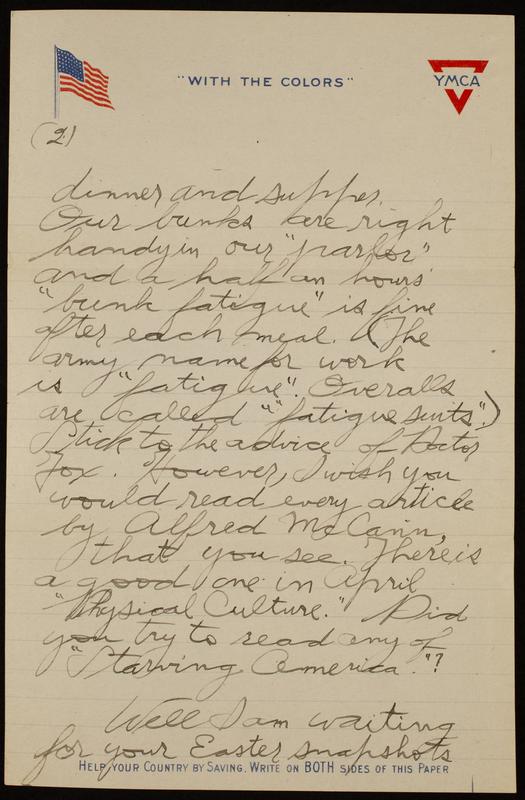 "WITH THE COLORS"
YMCA
(2)
dinner and supper.
Our bunks are right
handy in our "parlor"
and a half an hours'
"bunk fatigue" is fine
after each meal. (The
army name for work
is "fatigue". Overalls
are called "fatigue suits".)
Stick to the advice of Doctor
Fox. However, I wish you
would read every article
by Alfred McCann,
that you see. There is
a good one in April
"Physical Culture." Did
you try to read any of
"Starving America."?
Well I am waiting
for your Easter snapshots
HELP YOUR COUNTRY BY SAVING. WRITE ON BOTH SIDES OF THIS PAPER